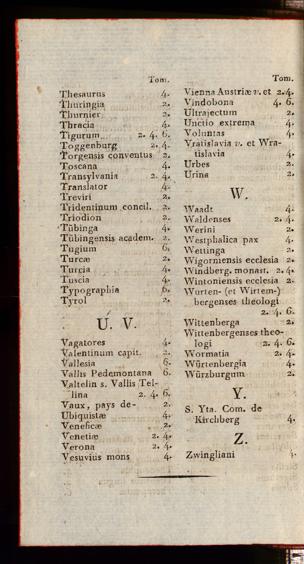 Tom.
Thesaurus 4.
Thuringia 2.
Thurnier 2.
Thracia 4.
Tigurum 2. 4. 6.
Toggenburg 2. 4.
Torgensis conventus 2.
Toscana 4.
Transylvania 2. 4.
Translator 4.
Treviri 2.
Tridentinum concil. 2.
Triodion 2.
Tübinga 4.
Tübingensis academ. 2.
Tugium 6.
Turcæ 2.
Turcia 4.
Tuscia 4.
Typographia 6.
Tyrol 2.
U. V.
Vagatores 4.
Valentinum capit. 2.
Vallesia 6.
Vallis Pedemontana 6.
Valtelin s. Vallis Tel-
lina 2. 4. 6.
Vaux, pays de- 2.
Ubiquistæ 4.
Veneficæ 2.
Venetiæ 2. 4.
Verona 2. 4.
Vesuvius mons 4.
Tom.
Vienna Austriæ v. et 2. 4.
Vindobona 4. 6.
Ultrajectum 2.
Unctio extrema 4.
Voluntas 4.
Vratislavia v. et Wra-
tislavia 4.
Urbes 2.
Urina 2.
W.
Waadt 4.
Waldenses 2. 4.
Werini 2.
Westphalica pax 4.
Wettinga 2.
Wigorniensis ecclesia 2.
Windberg. monast. 2. 4.
Wintoniensis ecclesia 2.
Wurten- (et Wirtem-)
bergenses theologi
2. 4. 6.
Wittenberga 2.
Wittenbergenses theo-
logi 2. 4. 6.
Wormatia 2. 4.
Würtenbergia 4.
Würzburgum 2.
Y.
S. Yta. Com. de
Kirchberg 4.
Z.
Zwingliani 4.